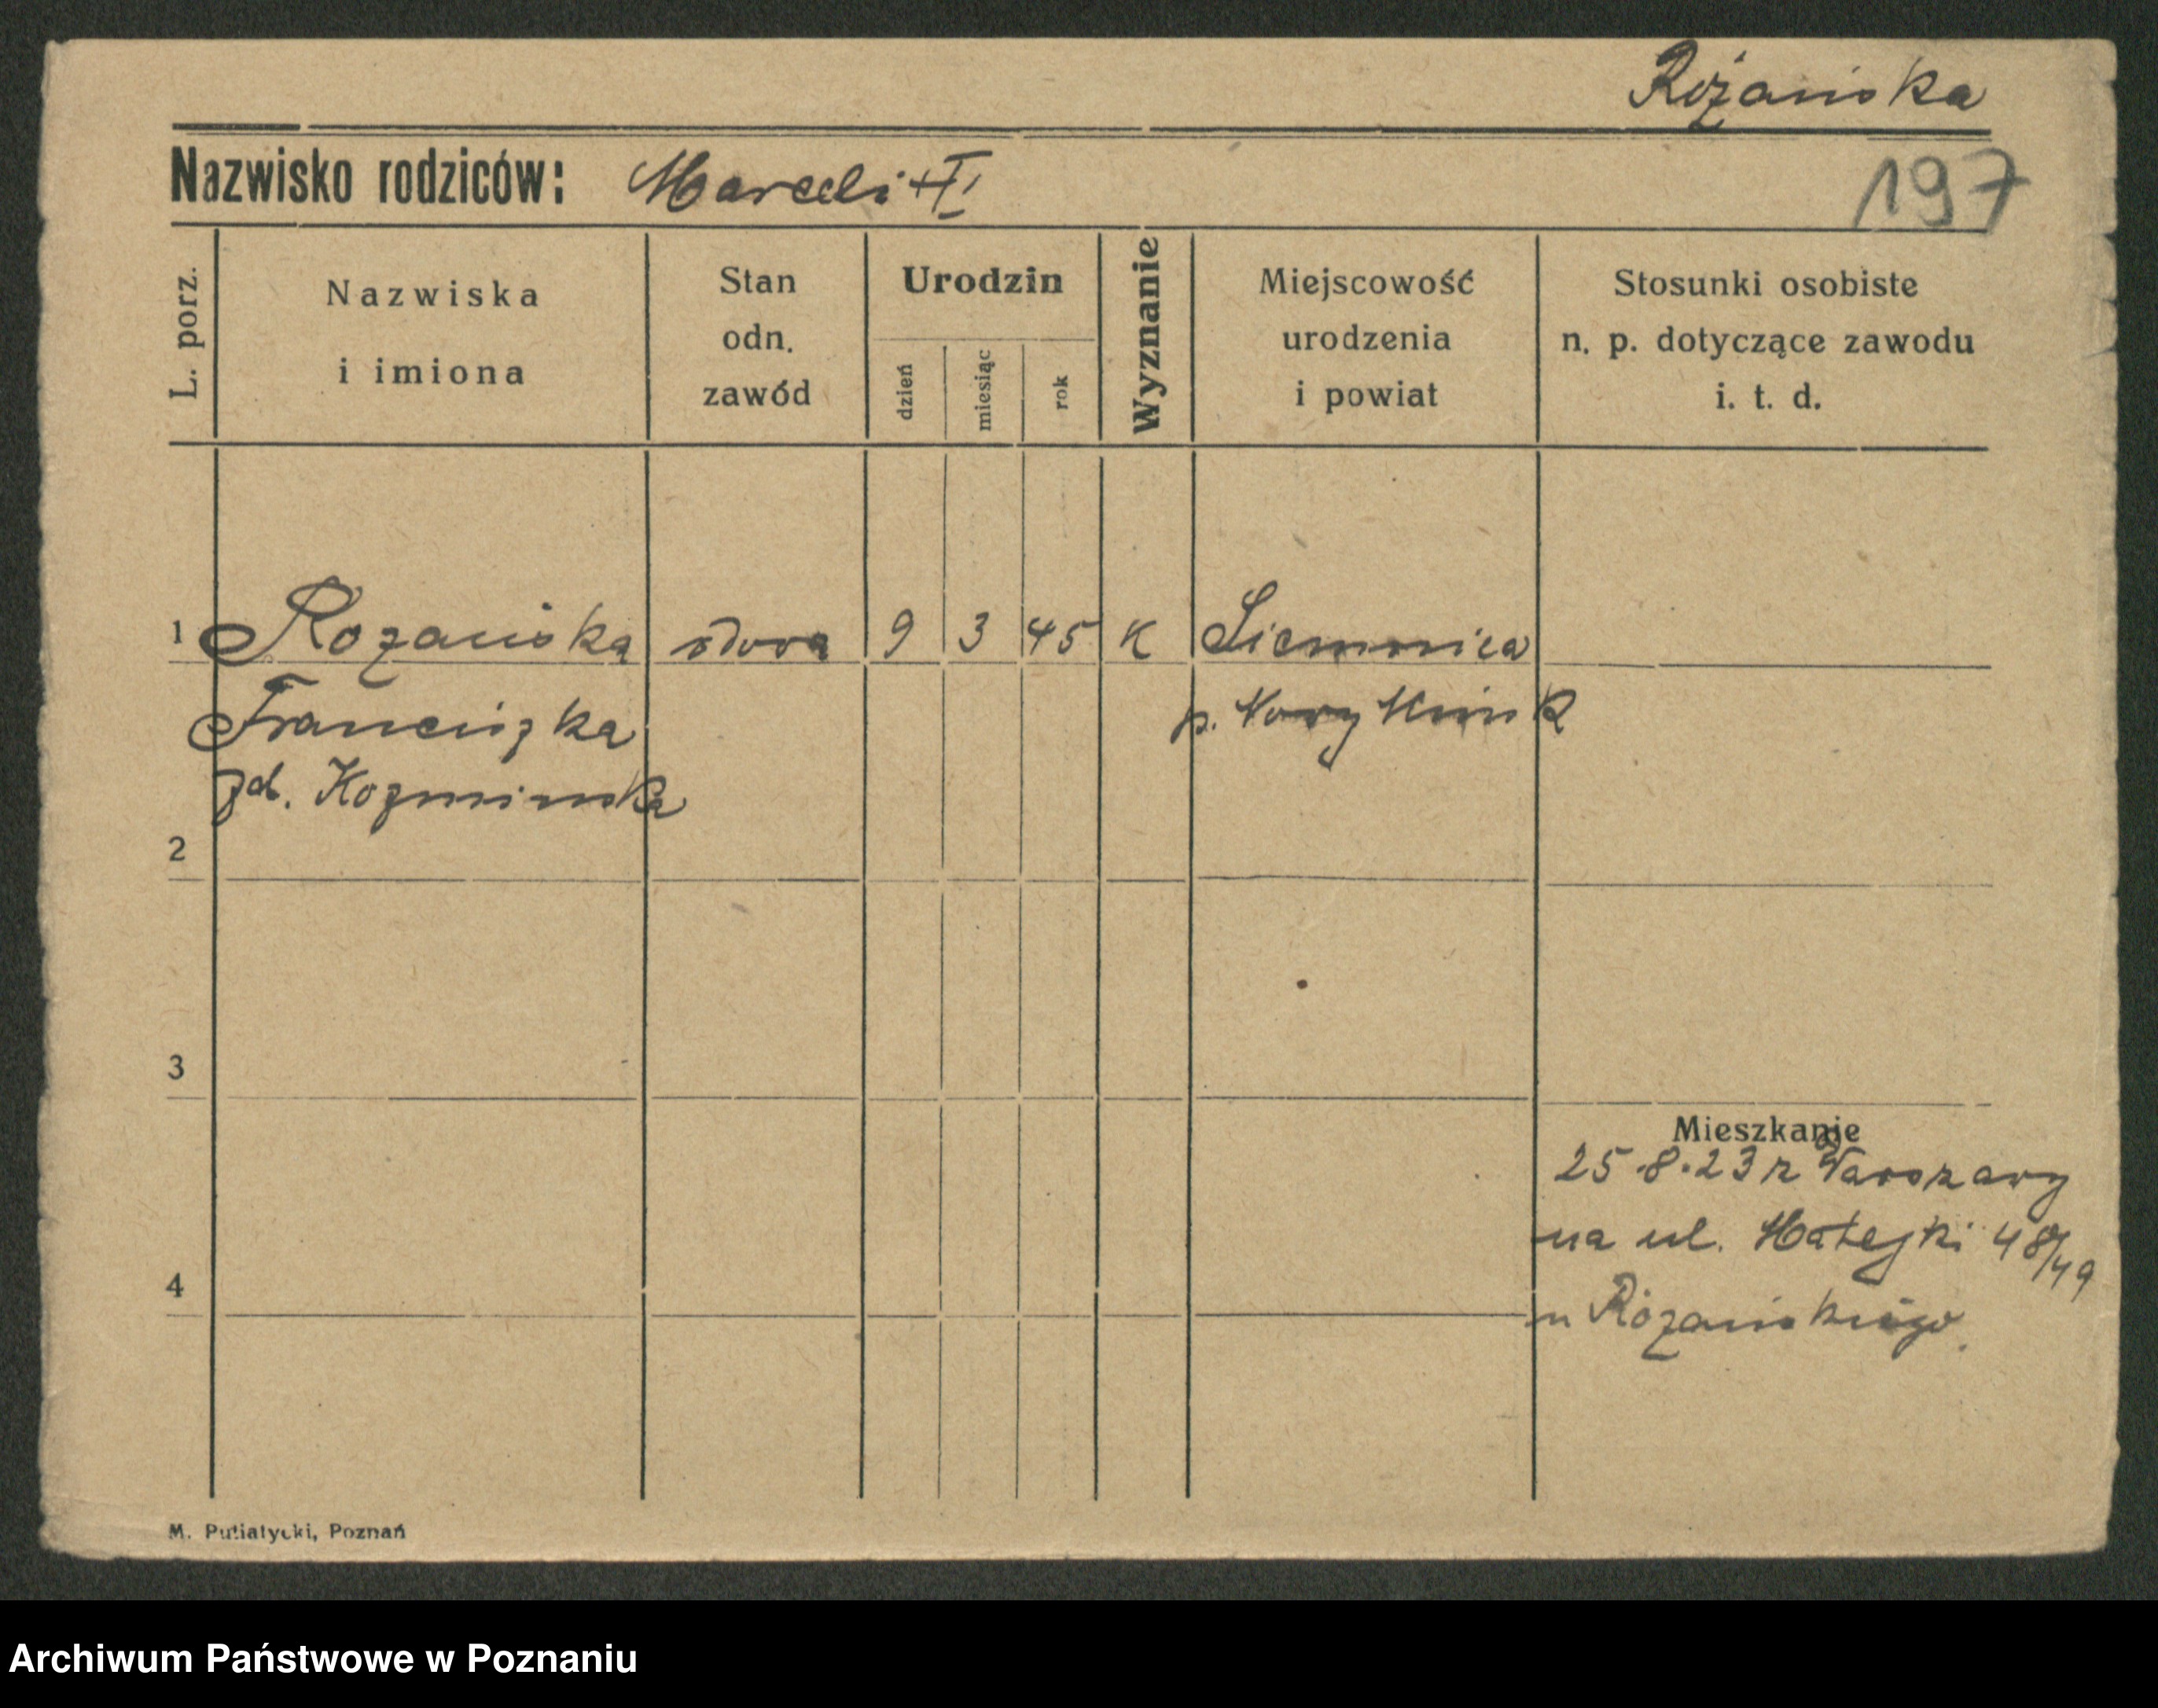 Różańska
Nazwisko rodziców: Marceli + I
197
L. porz.
Nazwiska i imiona
Stan odn. zawód
Urodzin
dzień
miesiąc
rok
Wyznanie
Miejscowość urodzenia i powiat
Stosunki osobiste n. p. dotyczące zawodu i. t. d.
1 Rożańska wdowa 9 3 45 K Siemonica
Franciszka p. Nowy
zd. Kozminska
2
3
Mieszkanie
25.8.23 z Warszawy
na ul. Matejki 48/49
4
u Różańskiego.
M. Putiatycki, Poznań
Archiwum Państwowe w Poznaniu